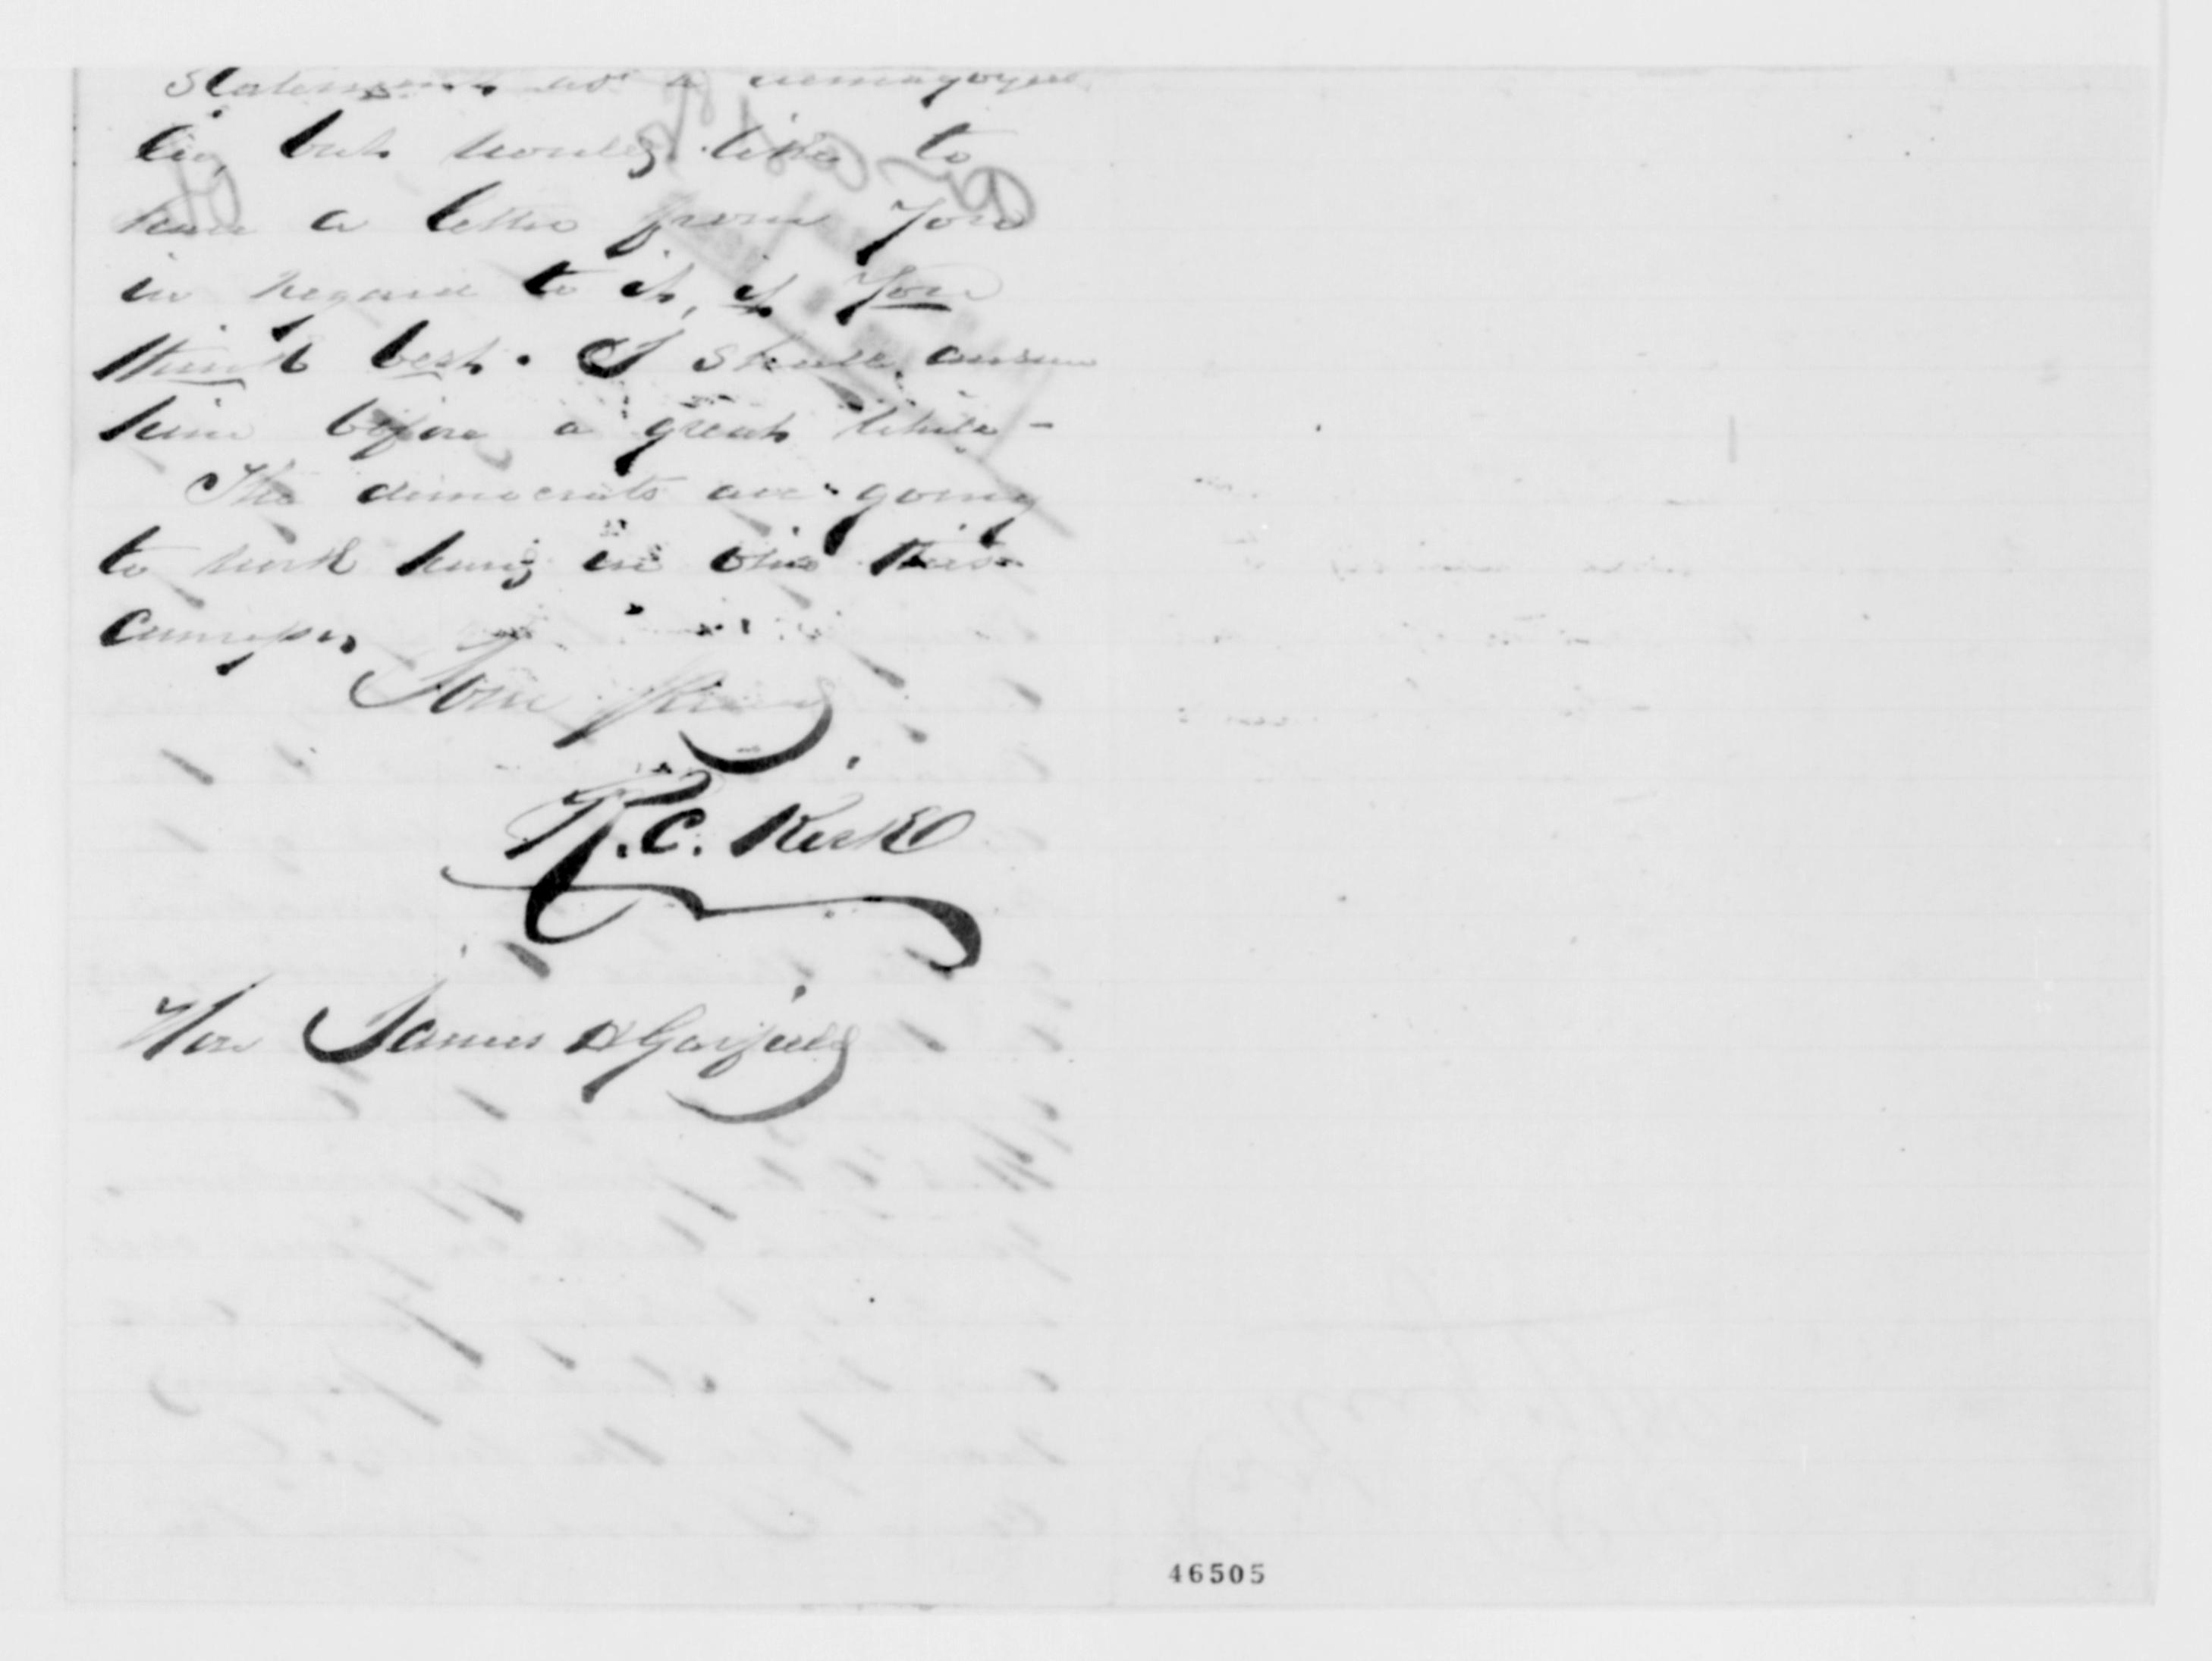 Statement as a demagogue
lie, but would like to
have a letter from you
in regard to it, if you
think best. I shall answer
him before a great while -
The democrats are going
to work hard in Ohio this
Campn
Your friend
R. C. Kirk
Hon James A Garfield
46505